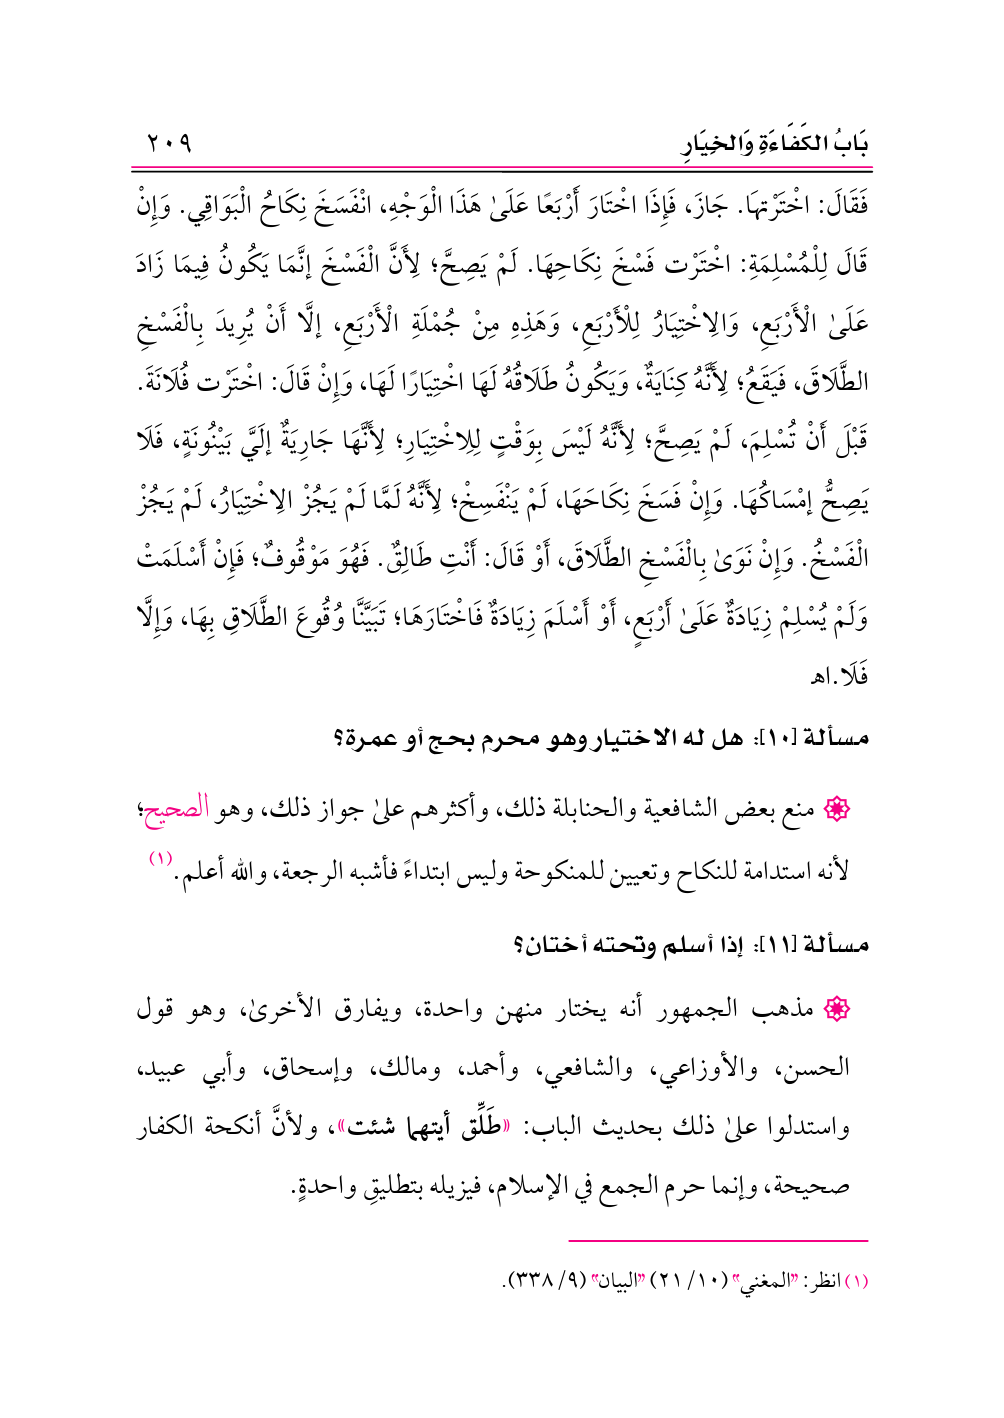 بَابُ الكَفَاءَةِ وَالخِيَارِ ٢٠٩
فَقَالَ: اخْتَرْتهَا. جَازَ، فَإِذَا اخْتَارَ أَرْبَعًا عَلَىٰ هَذَا الْوَجْهِ، انْفَسَخَ نِكَاحُ الْبَوَاقِي. وَإِنْ
قَالَ لِلْمُسْلِمَةِ: اخْتَرْت فَسْخَ نِكَاحِهَا. لَمْ يَصِحَّ؛ لِأَنَّ الْفَسْخَ إنَّمَا يَكُونُ فِيمَا زَادَ
عَلَىٰ الْأَرْبَعِ، وَالِاخْتِيَارُ لِلْأَرْبَعِ، وَهَذِهِ مِنْ جُمْلَةِ الْأَرْبَعِ، إلَّا أَنْ يُرِيدَ بِالْفَسْخِ
الطَّلَاقَ، فَيَقَعُ؛ لِأَنَّهُ كِنَايَةٌ، وَيَكُونُ طَلَاقُهُ لَهَا اخْتِيَارًا لَهَا، وَإِنْ قَالَ: اخْتَرْت فُلَانَةَ.
قَبْلَ أَنْ تُسْلِمَ، لَمْ يَصِحَّ؛ لِأَنَّهُ لَيْسَ بِوَقْتٍ لِلِاخْتِيَارِ؛ لِأَنَّهَا جَارِيَةٌ إلَيَّ بَيْنُونَةٍ، فَلَا
يَصِحُّ إمْسَاكُهَا. وَإِنْ فَسَخَ نِكَاحَهَا، لَمْ يَنْفَسِخْ؛ لِأَنَّهُ لَمَّا لَمْ يَجُزْ الِاخْتِيَارُ، لَمْ يَجُزْ
الْفَسْخُ. وَإِنْ نَوَىٰ بِالْفَسْخِ الطَّلَاقَ، أَوْ قَالَ: أَنْتِ طَالِقٌ. فَهُوَ مَوْقُوفٌ؛ فَإِنْ أَسْلَمَتْ
وَلَمْ يُسْلِمْ زِيَادَةٌ عَلَىٰ أَرْبَعٍ، أَوْ أَسْلَمَ زِيَادَةٌ فَاخْتَارَهَا؛ تَبَيَّنَّا وُقُوعَ الطَّلَاقِ بِهَا، وَإِلَّا
فَلَا.اهـ
مسألة [١٠]: هل له الاختيار وهو محرم بحج أو عمرة؟
منع بعض الشافعية والحنابلة ذلك، وأكثرهم علىٰ جواز ذلك، وهو الصحيح؛
لأنه استدامة للنكاح وتعيين للمنكوحة وليس ابتداءً فأشبه الرجعة، والله أعلم.(١)
مسألة [١١]: إذا أسلم وتحته أختان؟
مذهب الجمهور أنه يختار منهن واحدة، ويفارق الأخرىٰ، وهو قول
الحسن، والأوزاعي، والشافعي، وأحمد، ومالك، وإسحاق، وأبي عبيد،
واستدلوا علىٰ ذلك بحديث الباب: «طَلِّق أيتهما شئت»، ولأنَّ أنكحة الكفار
صحيحة، وإنما حرم الجمع في الإسلام، فيزيله بتطليقِ واحدةٍ.
(١) انظر: "المغني" (١٠/ ٢١) "البيان" (٩/ ٣٣٨).